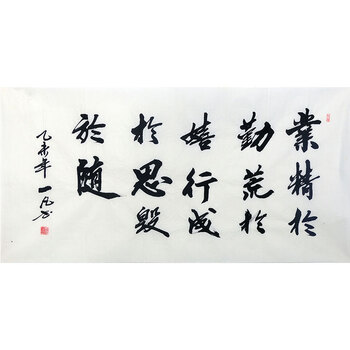 業精於
勤荒於
嬉行成
於思毀
於随
乙未年一凡书